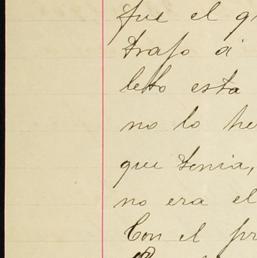 fue el
trajo á
esta
no lo he
que tenia,
no era el
Con el pr